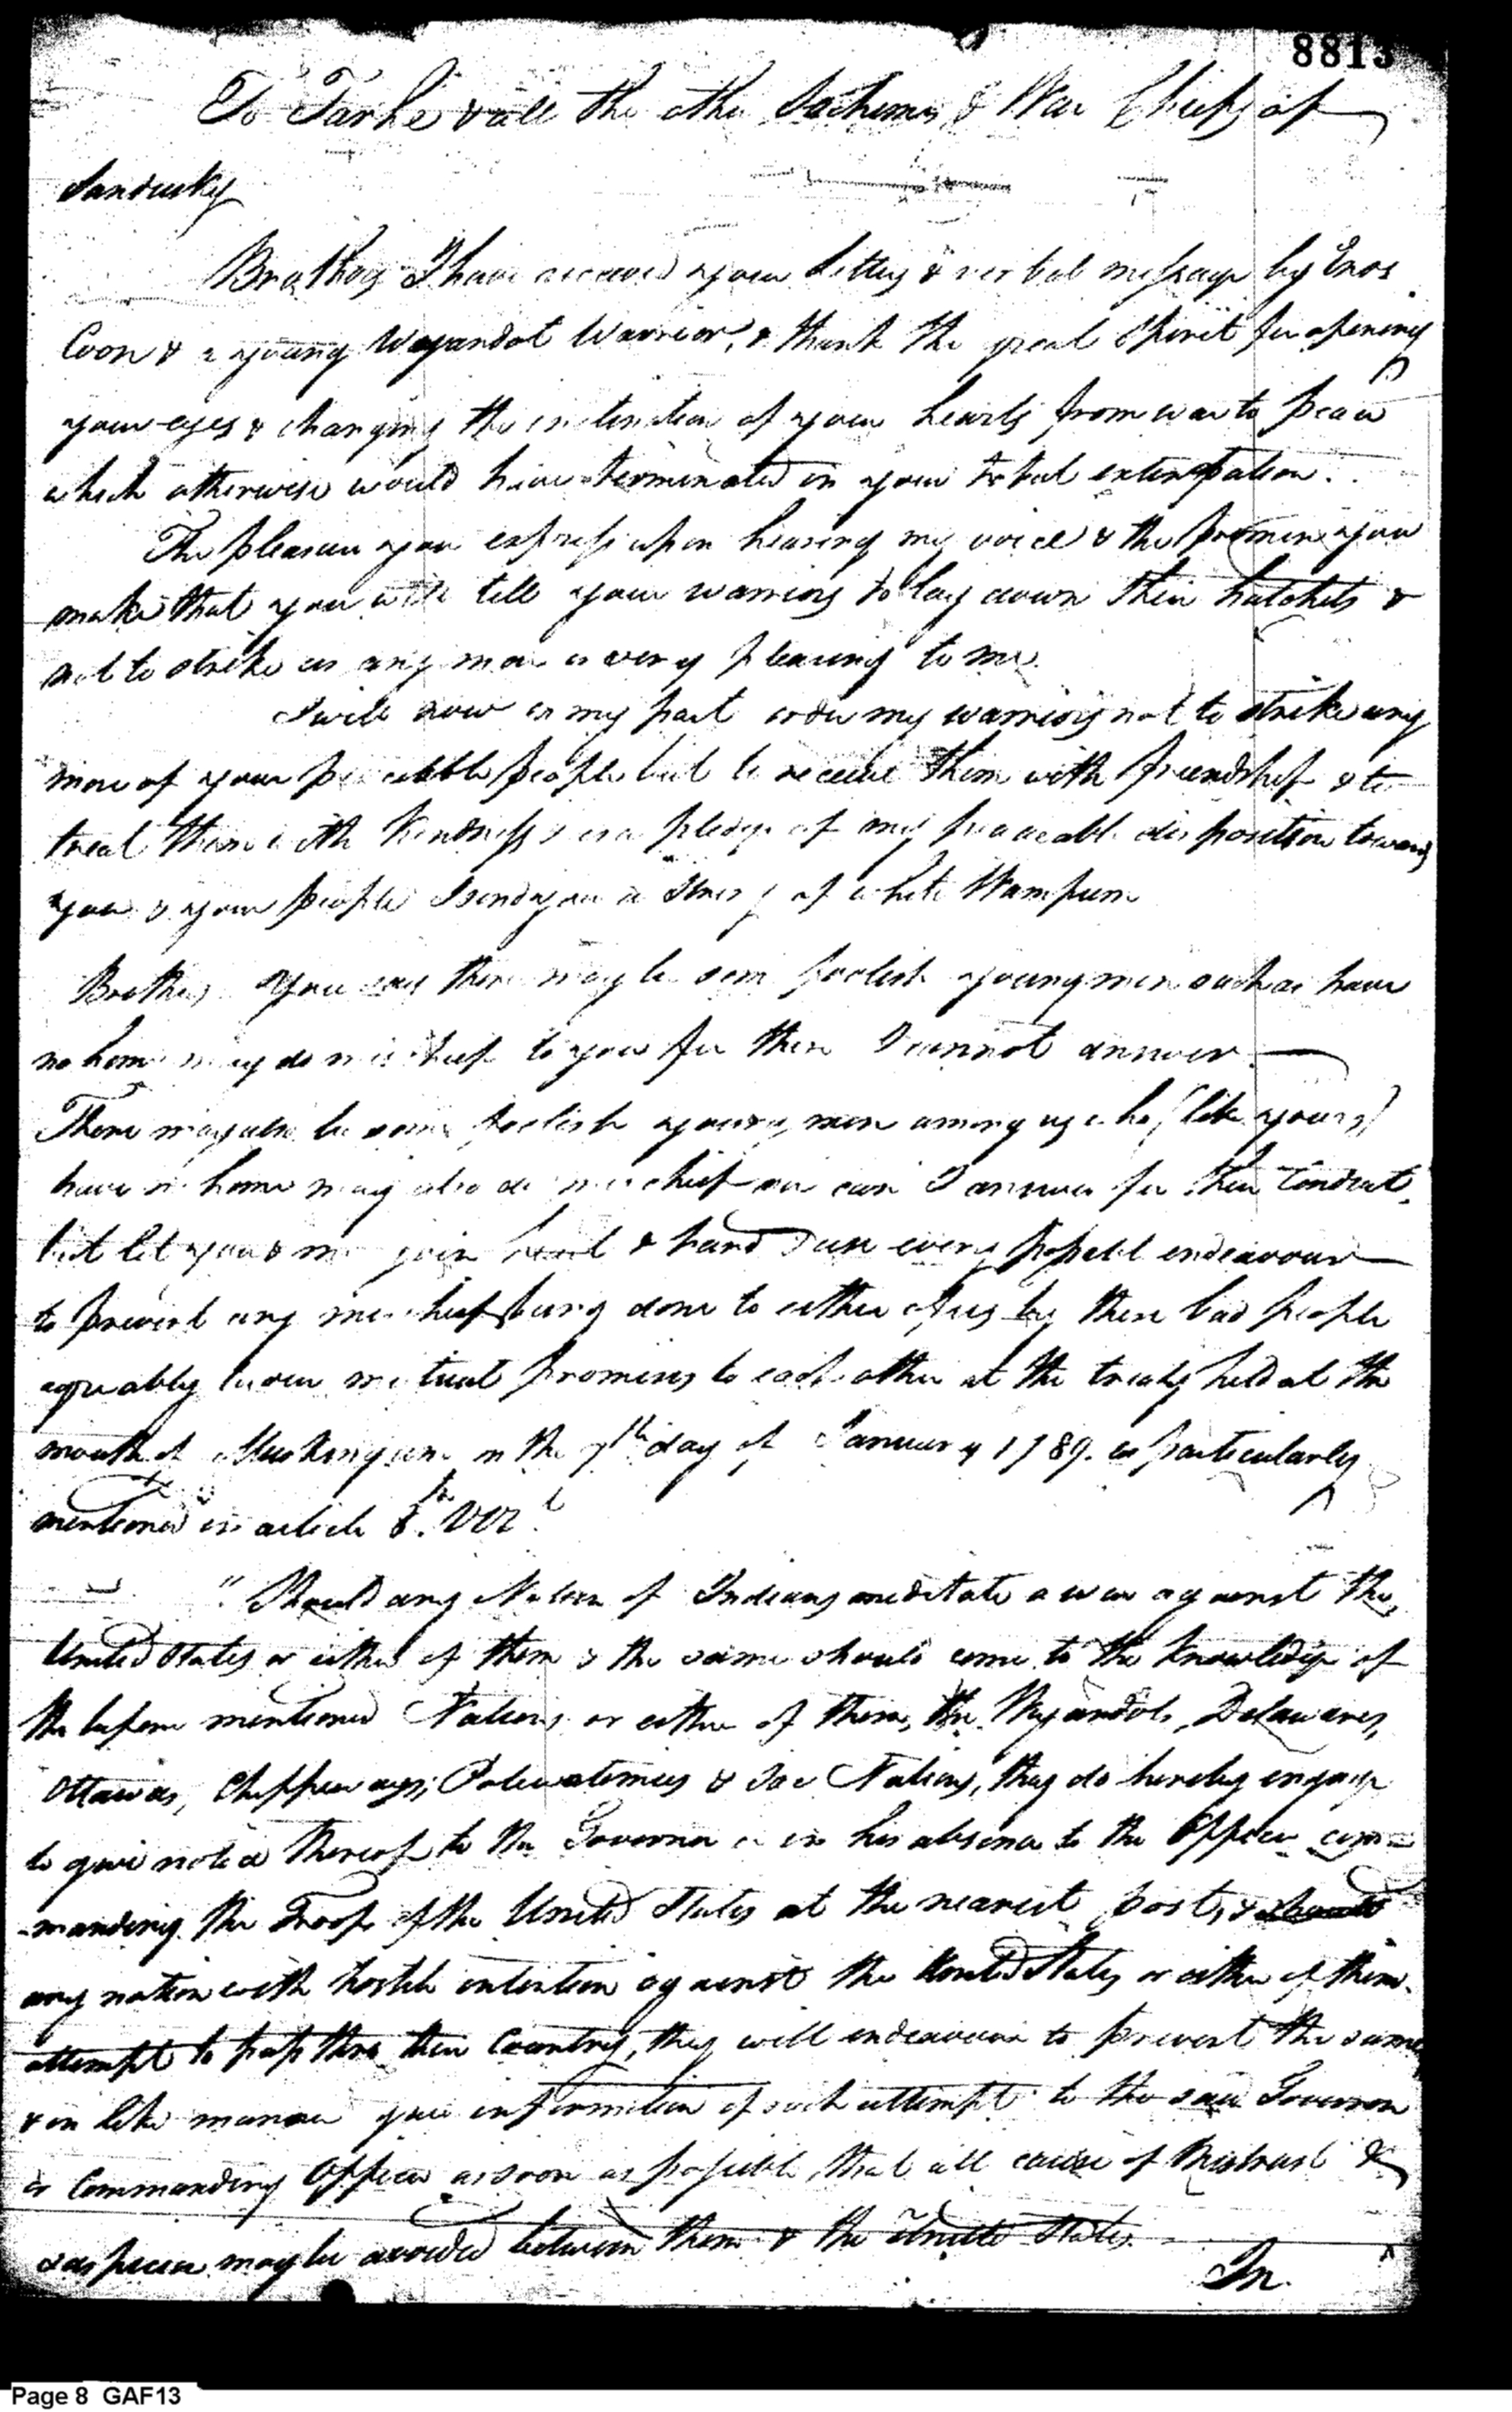 8813
To Tarhe & all the other Sachems & War Chiefs of
Sandusky
Brothers I have received your letters & verbal message by Enos
Coon & a young Wyandot Warrior, & thank the great Spirit for opening
your eyes & changing the intention of your hearts from war to peace
which otherwise would have terminated in your total extirpation.
The pleasure you express upon hearing my voice & the promise you
make that you will tell your warriors to lay down their hatchets &
not to strike us any more is very pleasing to me.
I will now on my part order my warriors not to strike any
more of your peaceable people but to receive them with friendship & to
treat them with kindness & as a pledge of my peaceable disposition towards
you & your people I send you a String of white Wampum
Brothers You say there may be some foolish young men such as have
no home may do mischief to you for them I cannot answer
There may also be some foolish young men among us who (like yours)
have no home may also do mischief nor can I answer for their Conduct,
but let you & me join heart & hand & use every possible endeavour
to prevent any mischief being done to either of us by these bad people
agreeably to our mutual promises to each other at the treaty held at the
mouth of Muskingum on the 9th day of January 1789. as particularly
mentioned in article 8th. Vizt.
"Should any Nation of Indians meditate a war against the
United States or either of them & the same should come to the knowledge of
the before mentioned Nations or either of them, the Wyandots, Delawares,
Ottawas, Chippeways, Potewatemies & Sac Nations, they do hereby engage
to give notice thereof to the Governor or in his absence to the Officer com=
-manding the Troops of the United States at the nearest post, & should
any nation with hostile intention against the United States or either of them
attempt to pass thro their Country, they will endeavour to prevent the same,
& in like manner give information of such attempt to the said Governor
or Commanding Officer as soon as possible, that all cause of mistrust &
suspicion may be avoided between them & the United States.
In.
Page 8 GAF13